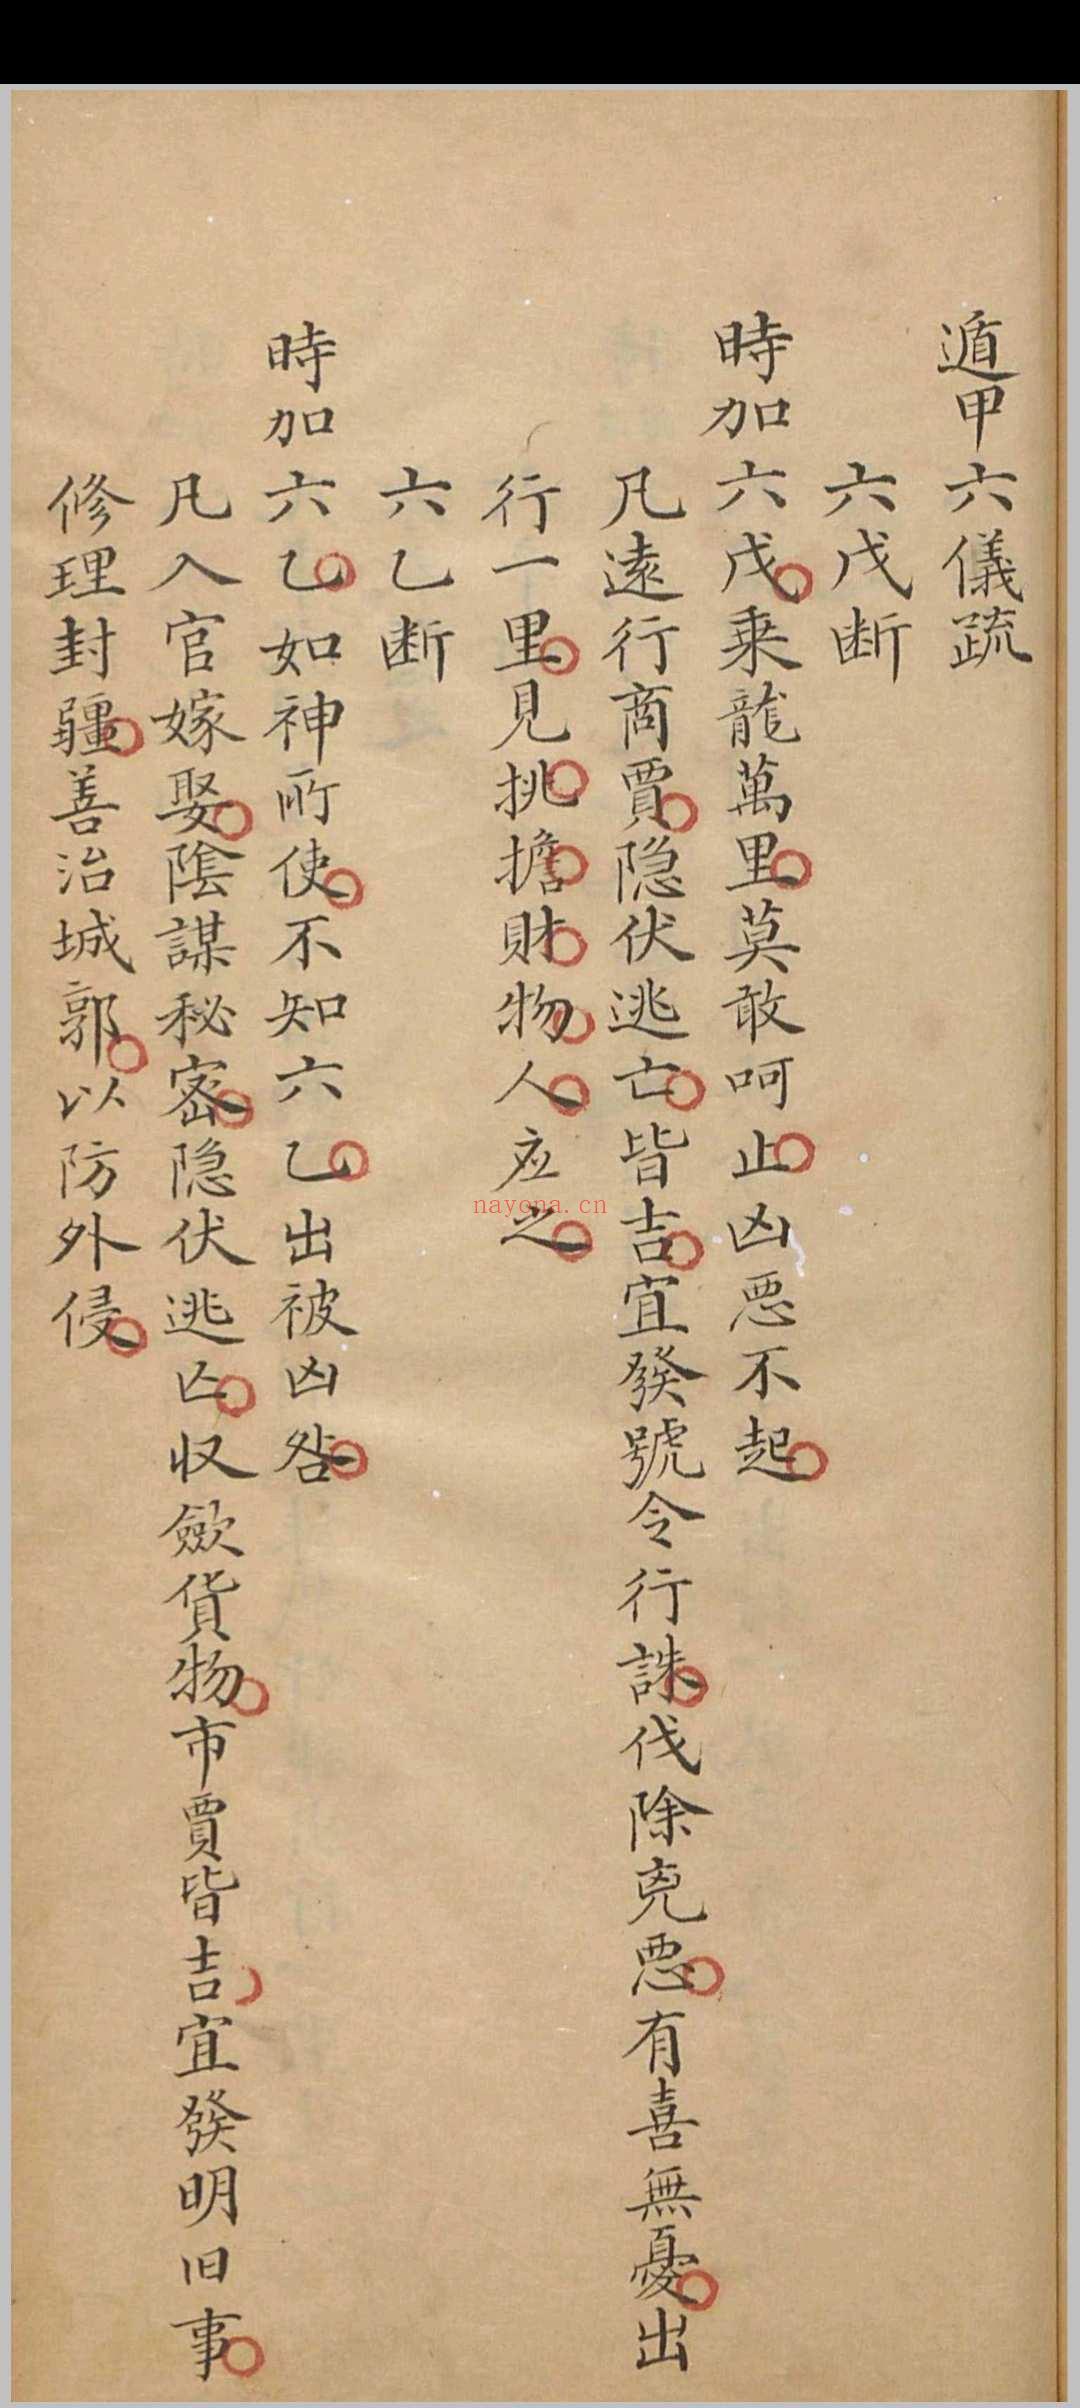 遁甲六儀疏
六戊断
時加六戊乗龍萬里莫敢呵止凶惡不起
凡遠行商賈隐伏逃亡皆吉宜發號令行誅伐除兇惡有喜無憂出
行一里見挑擔財物人应之
六乙断
時加六乙如神所使不知六乙出被凶咎
凡入官嫁娶陰謀秘密隐伏逃亡収斂貨物市賈皆吉宜發明旧事
修理封疆善治城郭以防外侵
nayona.cn